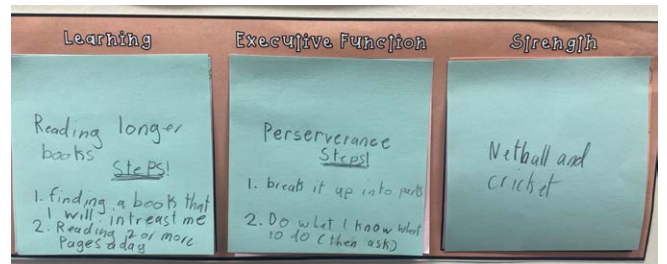 Learning
Reading longer
books
Steps!
1. finding a book that
I will intreast me
2. Reading 2 or more
Pages a day
Executive Function
Perserverance
Steps!
1. break it up into parts
2. Do what I know what
to do (then ask)
Strength
Netball and
cricket